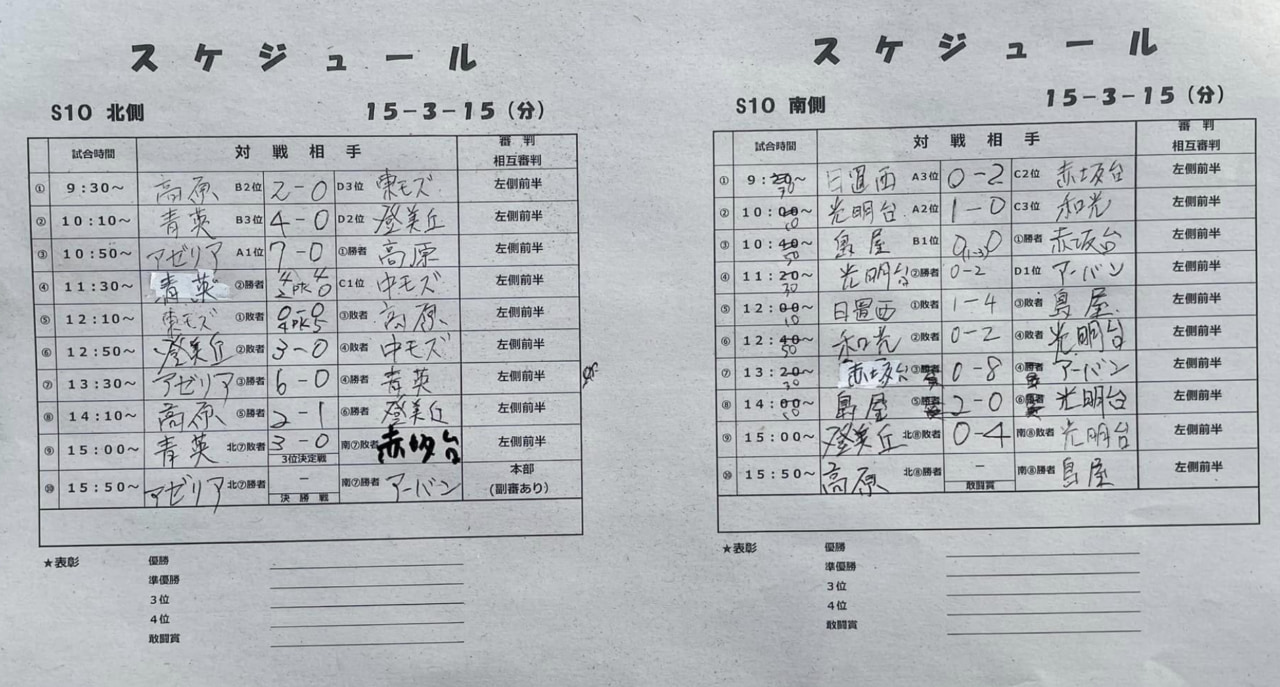 スケジュール
S10 北側 15-3-15(分)
試合時間 対戦相手 審判 相互審判
① 9:30~ 高原 B2位 2-0 D3位 東モズ 左側前半
② 10:10~ 青英 B3位 4-0 D2位 登美丘 左側前半
③ 10:50~ アゼリア A1位 7-0 ①勝者 高原 左側前半
④ 11:30~ 青英 ②勝者 4-4 2PK0 C1位 中モズ 左側前半
⑤ 12:10~ 東モズ ①敗者 0-0 4PK5 ③敗者 高原 左側前半
⑥ 12:50~ 登美丘 ②敗者 3-0 ④敗者 中モズ 左側前半
⑦ 13:30~ アゼリア ③勝者 6-0 ④勝者 青英 左側前半
⑧ 14:10~ 高原 ⑤勝者 2-1 ⑥勝者 登美丘 左側前半
⑨ 15:00~ 青英 北⑦敗者 3-0 3位決定戦 南⑦敗者 赤坂台 左側前半
⑩ 15:50~ アゼリア 北⑦勝者 - 決勝戦 南⑦勝者 アーバン 本部 (副審あり)
★表彰 優勝
準優勝
3位
4位
敢闘賞
スケジュール
S10 南側 15-3-15(分)
試合時間 対戦相手 審判 相互審判
① 9:30~ 日置西 A3位 0-2 C2位 赤坂台 左側前半
② 10:10~ 光明台 A2位 1-0 C3位 和光 左側前半
③ 10:50~ 島屋 B1位 0(1-3)0 ①勝者 赤坂台 左側前半
④ 11:30~ 光明台 ②勝者 0-2 D1位 アーバン 左側前半
⑤ 12:10~ 日置西 ①敗者 1-4 ③敗者 島屋 左側前半
⑥ 12:50~ 和光 ②敗者 0-2 ④敗者 光明台 左側前半
⑦ 13:30~ 赤坂台 ③勝者 0-8 ④勝者 アーバン 左側前半
⑧ 14:10~ 島屋 ⑤勝者 2-0 ⑥勝者 光明台 左側前半
⑨ 15:00~ 登美丘 北⑧敗者 0-4 南⑧敗者 光明台 左側前半
⑩ 15:50~ 高原 北⑧勝者 - 敢闘賞 南⑧勝者 島屋 左側前半
★表彰 優勝
準優勝
3位
4位
敢闘賞